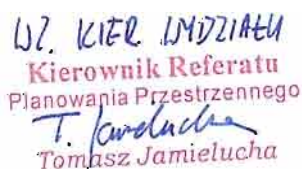 WZ. KIER. WYDZIAŁU
Kierownik Referatu
Planowania Przestrzennego
T. Jamielucha
Tomasz Jamielucha